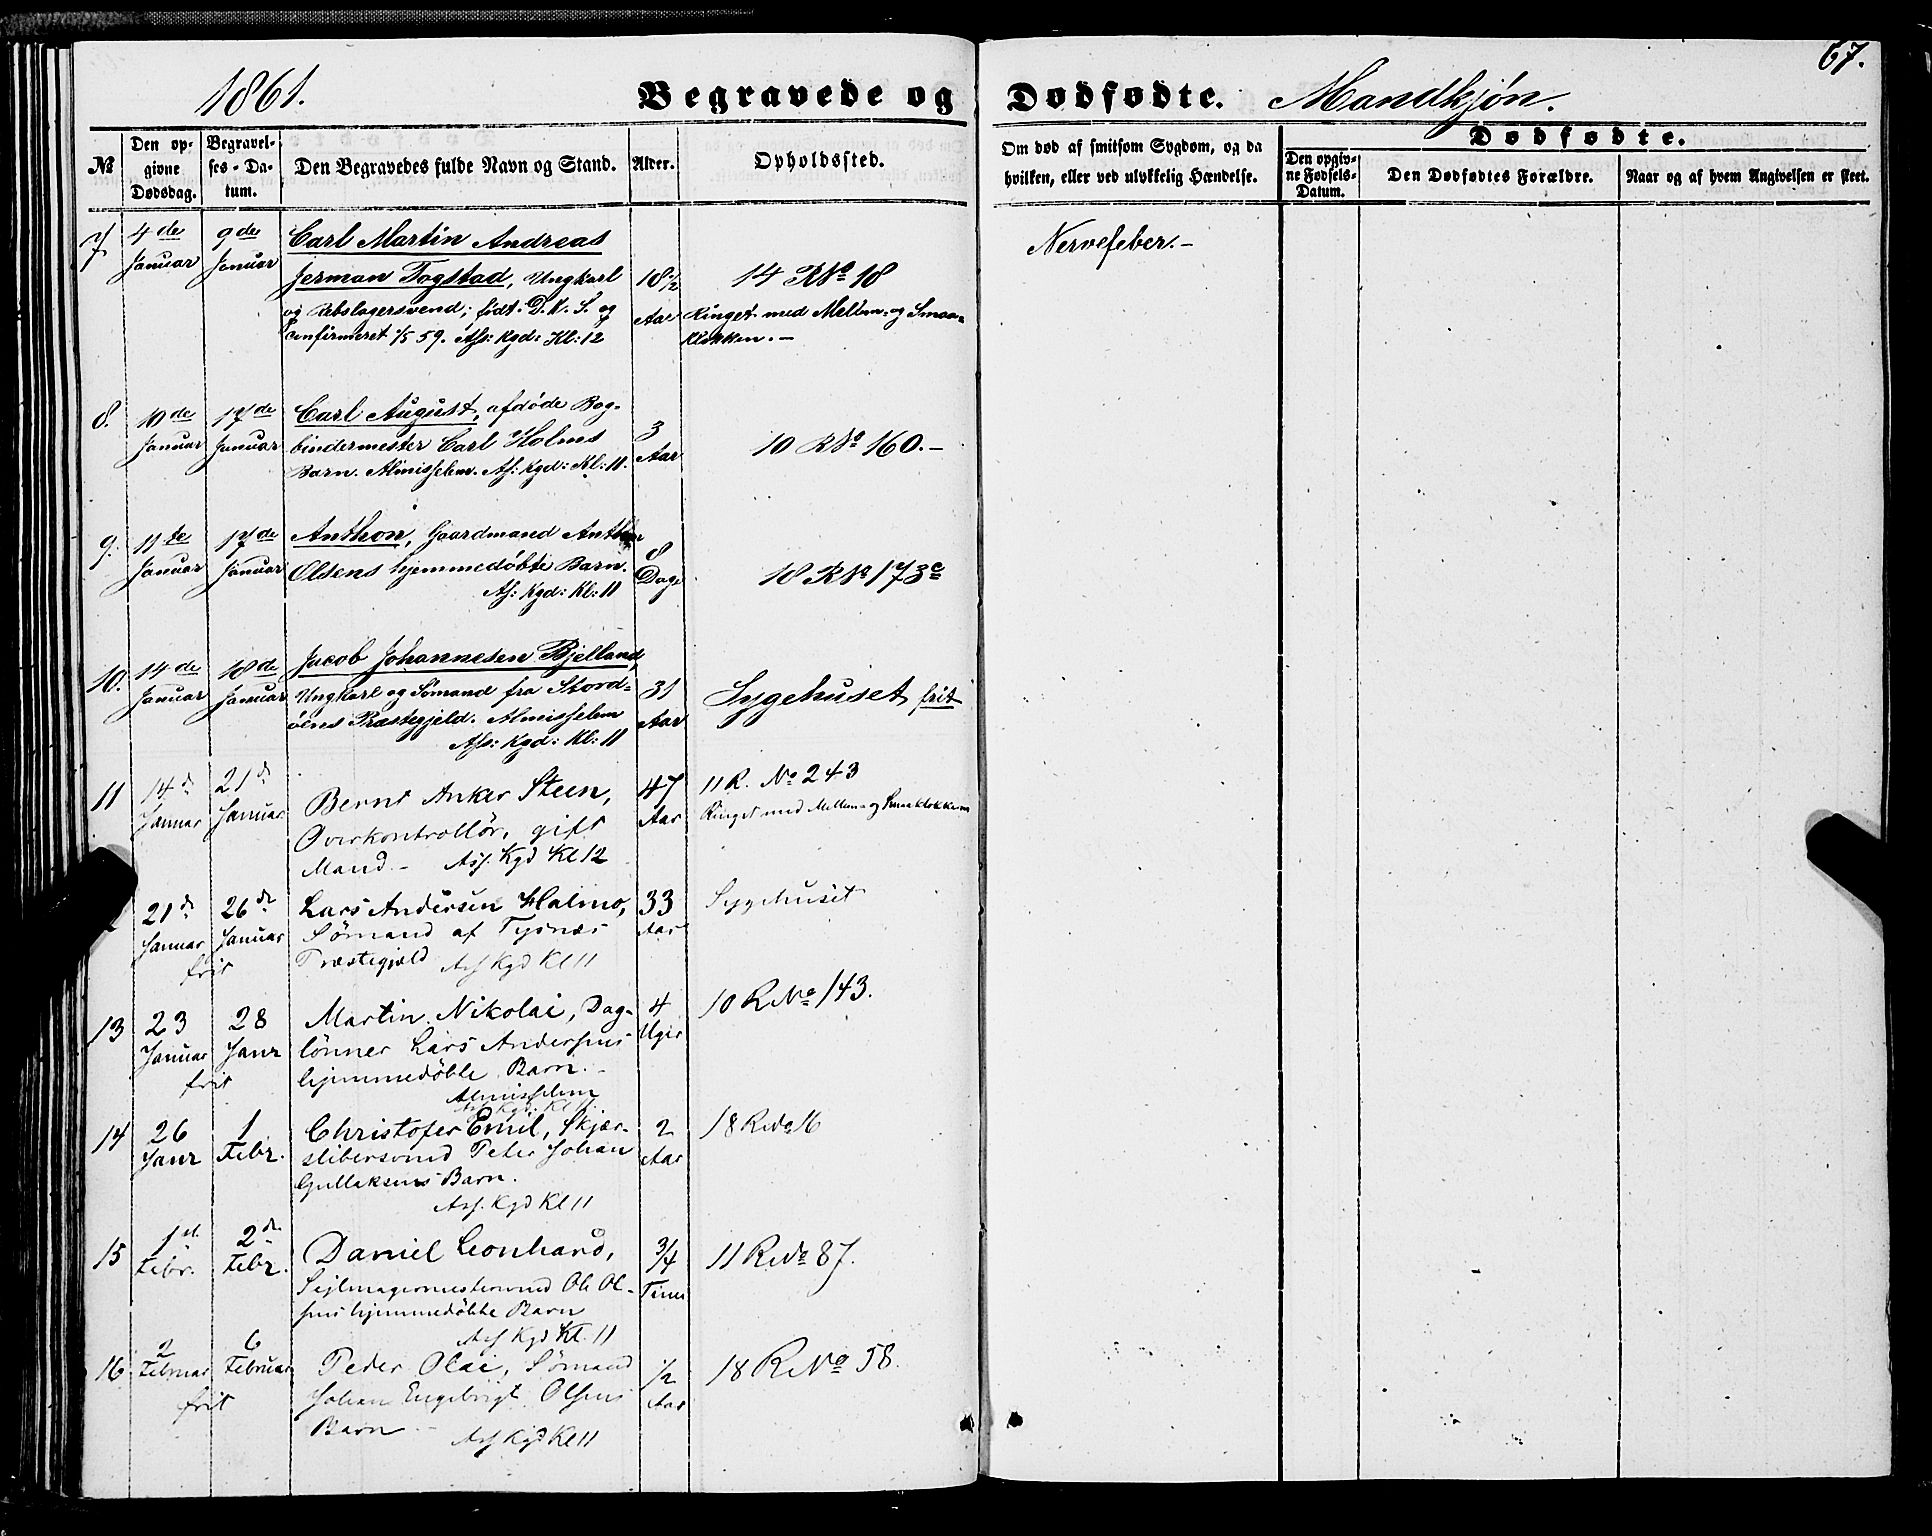 67.
1861. Begravede og Dødfødte. Mandkjøn.
№ Den opgivne Dødsdag. Begravelses-Datum. Den Begravedes fulde Navn og Stand. Alder. Opholdssted. Om død af smitsom Sygdom, og da hvilken, eller ved ulykkelig Hændelse. Dødfødte. Den opgivne Fødsels-Datum. Den Dødfødtes Forældre. Naar og af hvem Angivelsen er skeet.
7 4de Januar 9de Januar Carl Martin Andreas
Jerman Togstad, Ungkarl 18½ 14 R No 18 Nervefeber.-
og Rebslagersvend; født D.K.S. og Aar Ringet med Mellem- og Smaa-
confirmeret 1/5 59. Ass: Kgd: Kl: 12 klokken.-
8. 10de Januar 17de Januar Carl August, afdøde Bog-
bindermester Carl Holms 3 Aar 10 R No 160.-
Barn. Almisselem. As: Kgd: Kl: 11.
9. 11te Januar 17de Januar Anthon, Gaardmand Anthon
Olsens hjemmedøbte Barn. 8 Dage 18 R No 173c
As: Kgd: Kl: 11
10. 14de Januar 18de Januar Jacob Johannesen Bjelland,
Ungkarl og Sømand fra Stord- 31 Sygehuset frit
øens Præstegjeld. Almisselem Aar
Ass: Kgd: Kl: 11
11 14d Januar 21d Januar Bernt Anker Steen, 47 Aar 11 R. No 243
Overkontrollør, gift Ringet med Mellem- og Smaaklokkerne
Mand.- Ass. Kgd Kl 12
21d Januar 26d Januar Lars Andersen Halmo, 33 Aar Sygehuset
Sømand af Tysnæs
frit Præstegjæld Ass Kgd Kl 11
13 23 Januar 28 Janr Martin Nikolai, Dag- 4 Uger 10 R No 143.
lønner Lars Andersens
frit hjemmedøbte Barn.-
Almisselem
Ass Kgd: Kl 11.
14 26 Janr 1 Febr. Christofer Emil, Skjær- 2 Aar 18 R No 16
slibersvend Peter Johan
Gullaksens Barn.
Ass. Kgd Kl 11
15 1st Febr. 2d Febr. Daniel Leonhard, ¾ Time 11 R No 87.
Sejlmagermestersvend Ole Ol-
sens hjemmedøbte Barn
Ass Kgd Kl. 11
16 2 Februar 6 Februar Peder Olai, Sømand ½ Aar 18 R No 58.
frit Johan Engebrigt Olsens
Barn.- Ass Kgd Kl 11